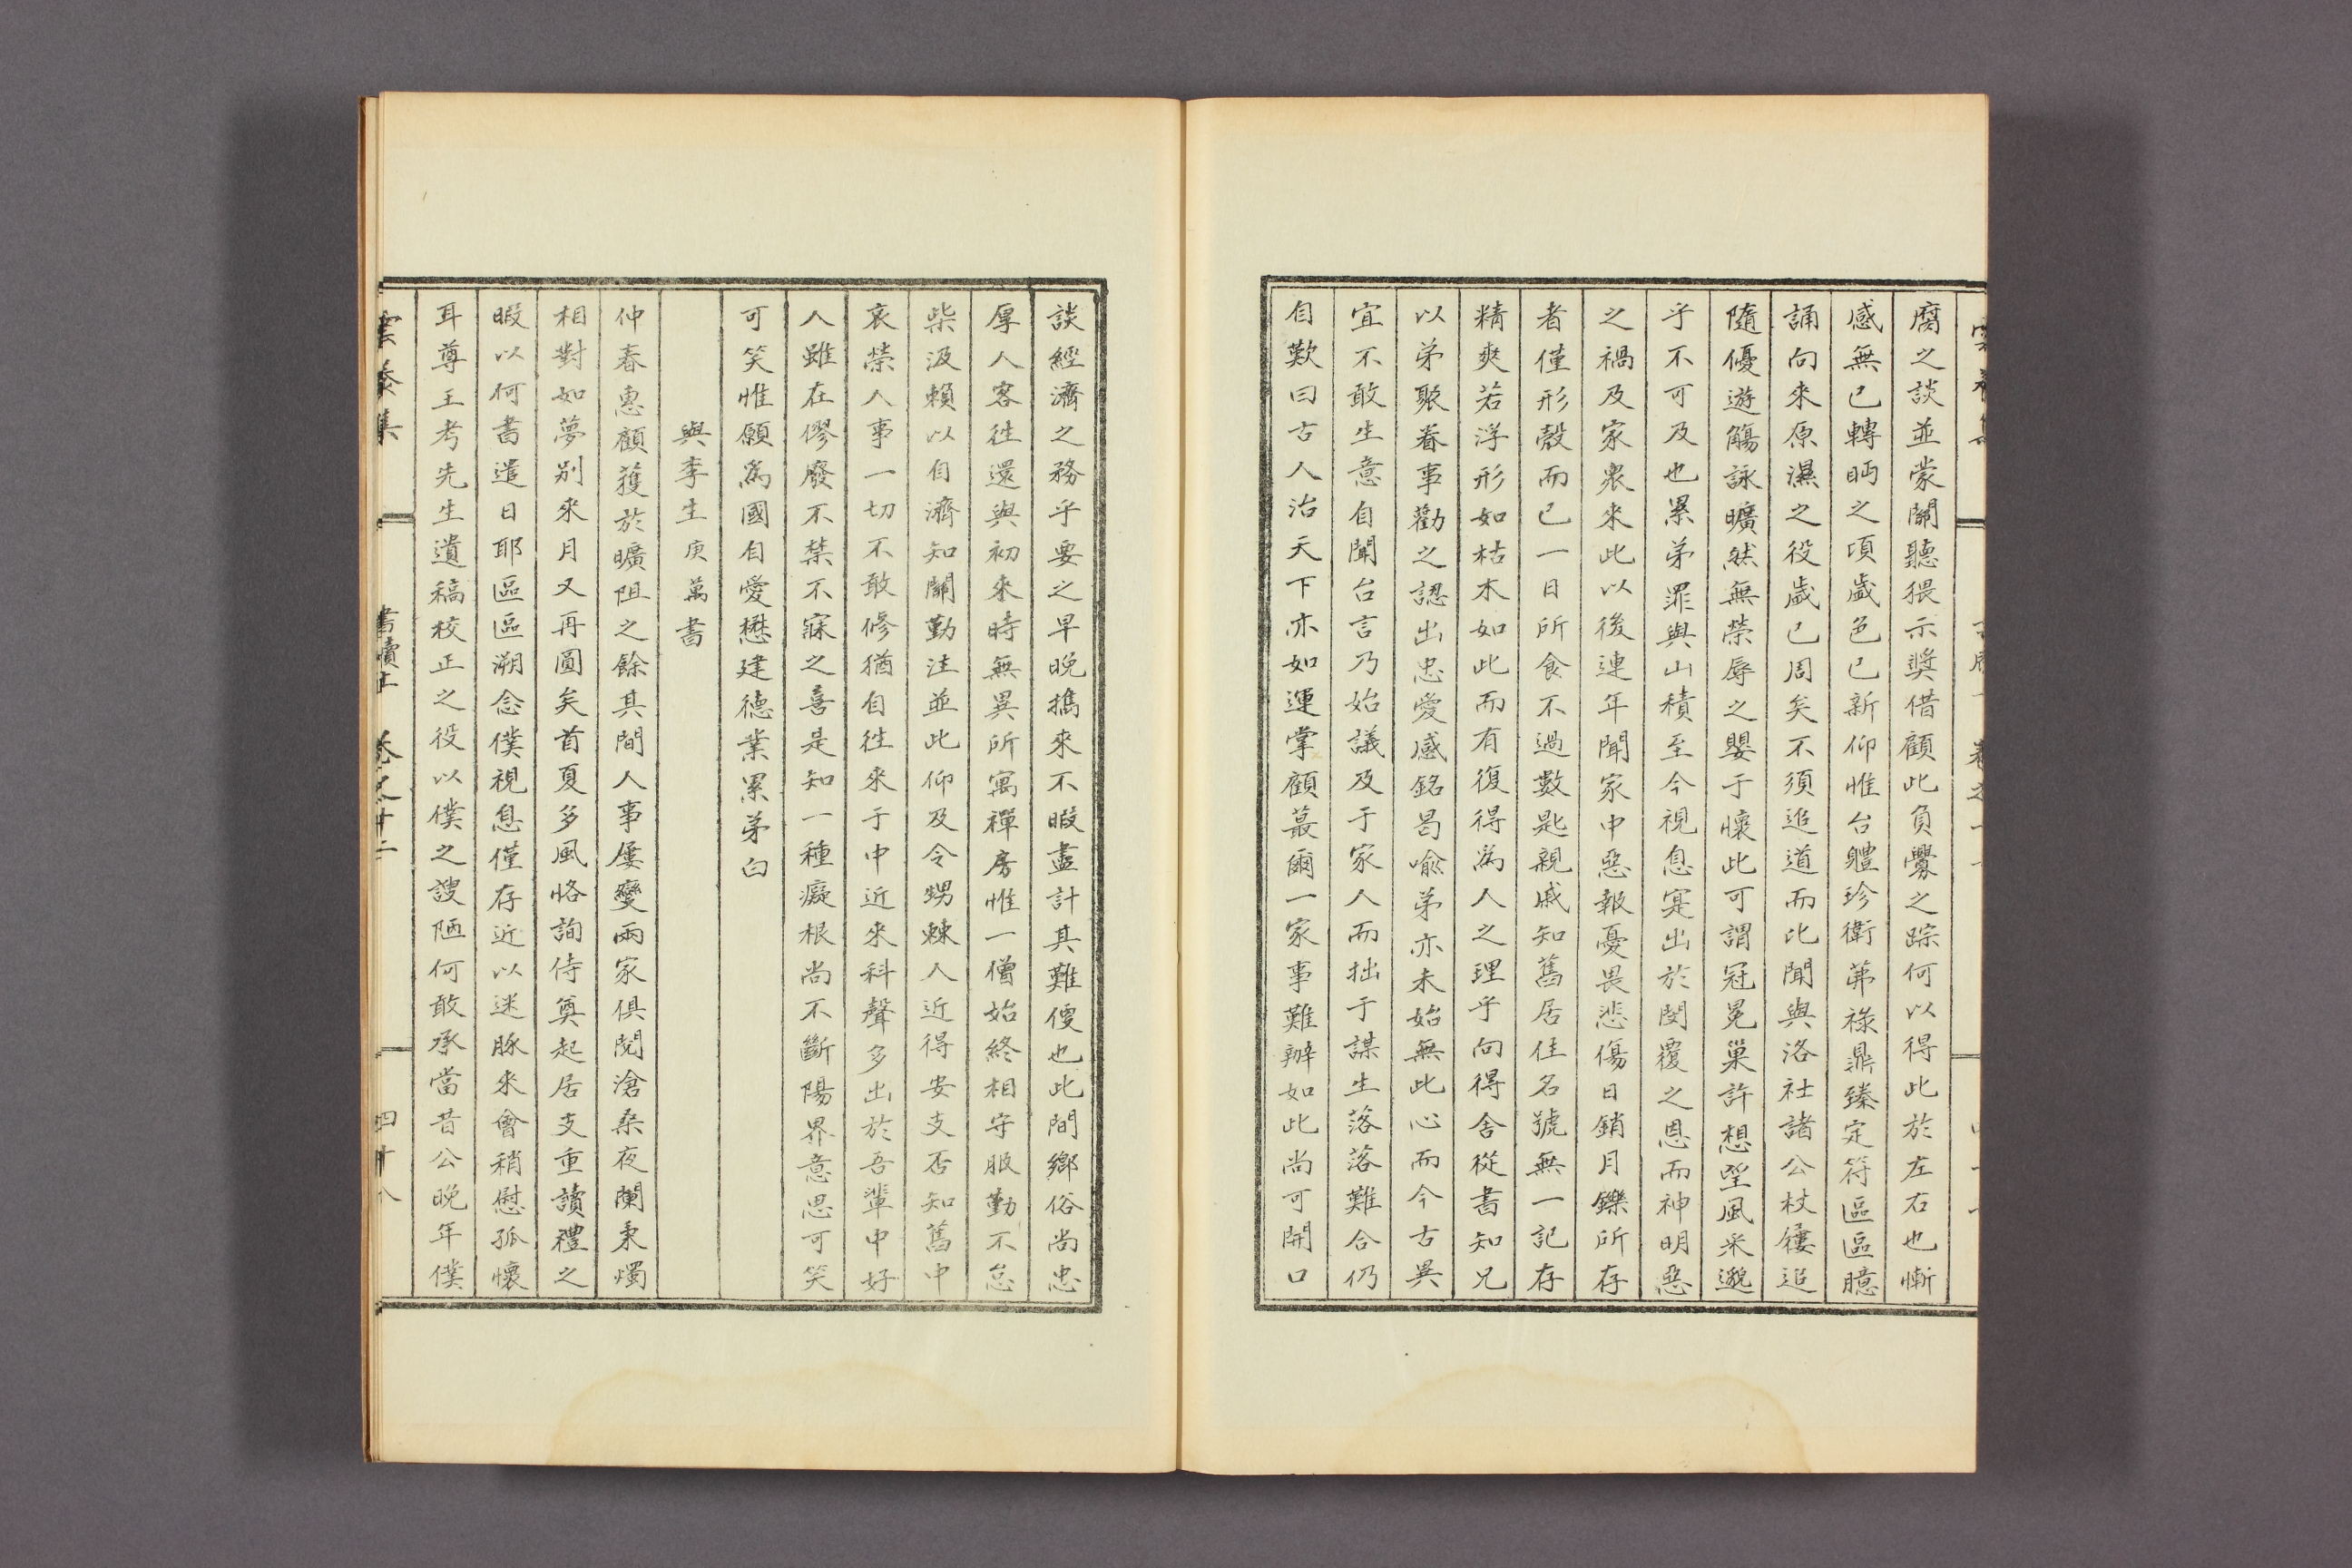 腐之談並蒙關聽猥示奬借顧此負釁之踪何以得此於左右也慚
感無已轉眄之頃歲色已新仰惟台軆珍衛茀祿鼎臻定符區區臆
誦向來原濕之役歲已周矣不須追道而比聞與洛社諸公杖屨追
隨優遊觴詠曠然無榮辱之嬰于懷此可謂冠冕巢許想望風采邈
乎不可及也累弟罪與山積至今視息寔出於閔覆之恩而神明惡
之禍及家衆來此以後連年聞家中惡報憂畏悲傷日銷月鑠所存
者僅形殼而已一日所食不過數匙親戚知舊居住名號無一記存
精爽若浮形如枯木如此而有復得爲人之理乎向得舍從書知兄
以弟聚眷事勸之認出忠愛感銘曷喩弟亦未始無此心而今古異
宜不敢生意自聞台言乃始議及于家人而拙于謀生落落難合仍
自歎曰古人治天下亦如運掌顧蕞爾一家事難辦如此尚可開口
談經濟之務乎要之早晩携來不暇盡計其難便也此間鄉俗尚忠
厚人客徃還與初來時無異所寓禪房惟一僧始終相守服勤不怠
柴汲賴以自濟知關勤注並此仰及令甥棘人近得安支否知舊中
哀榮人事一切不敢修猶自徃來于中近來科聲多出於吾輩中好
人雖在僇廢不禁不寐之喜是知一種癡根尚不斷陽界意思可笑
可笑惟願爲國自愛懋建德業累弟白
與李生庚萬書
仲春惠顧獲於曠阻之餘其間人事屢變兩家俱閱滄桑夜闌秉燭
相對如夢别來月又再圓矣首夏多風恪詢侍奠起居支重讀禮之
暇以何書遣日耶區區溯念僕視息僅存近以迷豚來會稍慰孤懷
耳尊王考先生遺稿校正之役以僕之謏陋何敢承當昔公晩年僕
集 書牘 卷之廿二 四十八